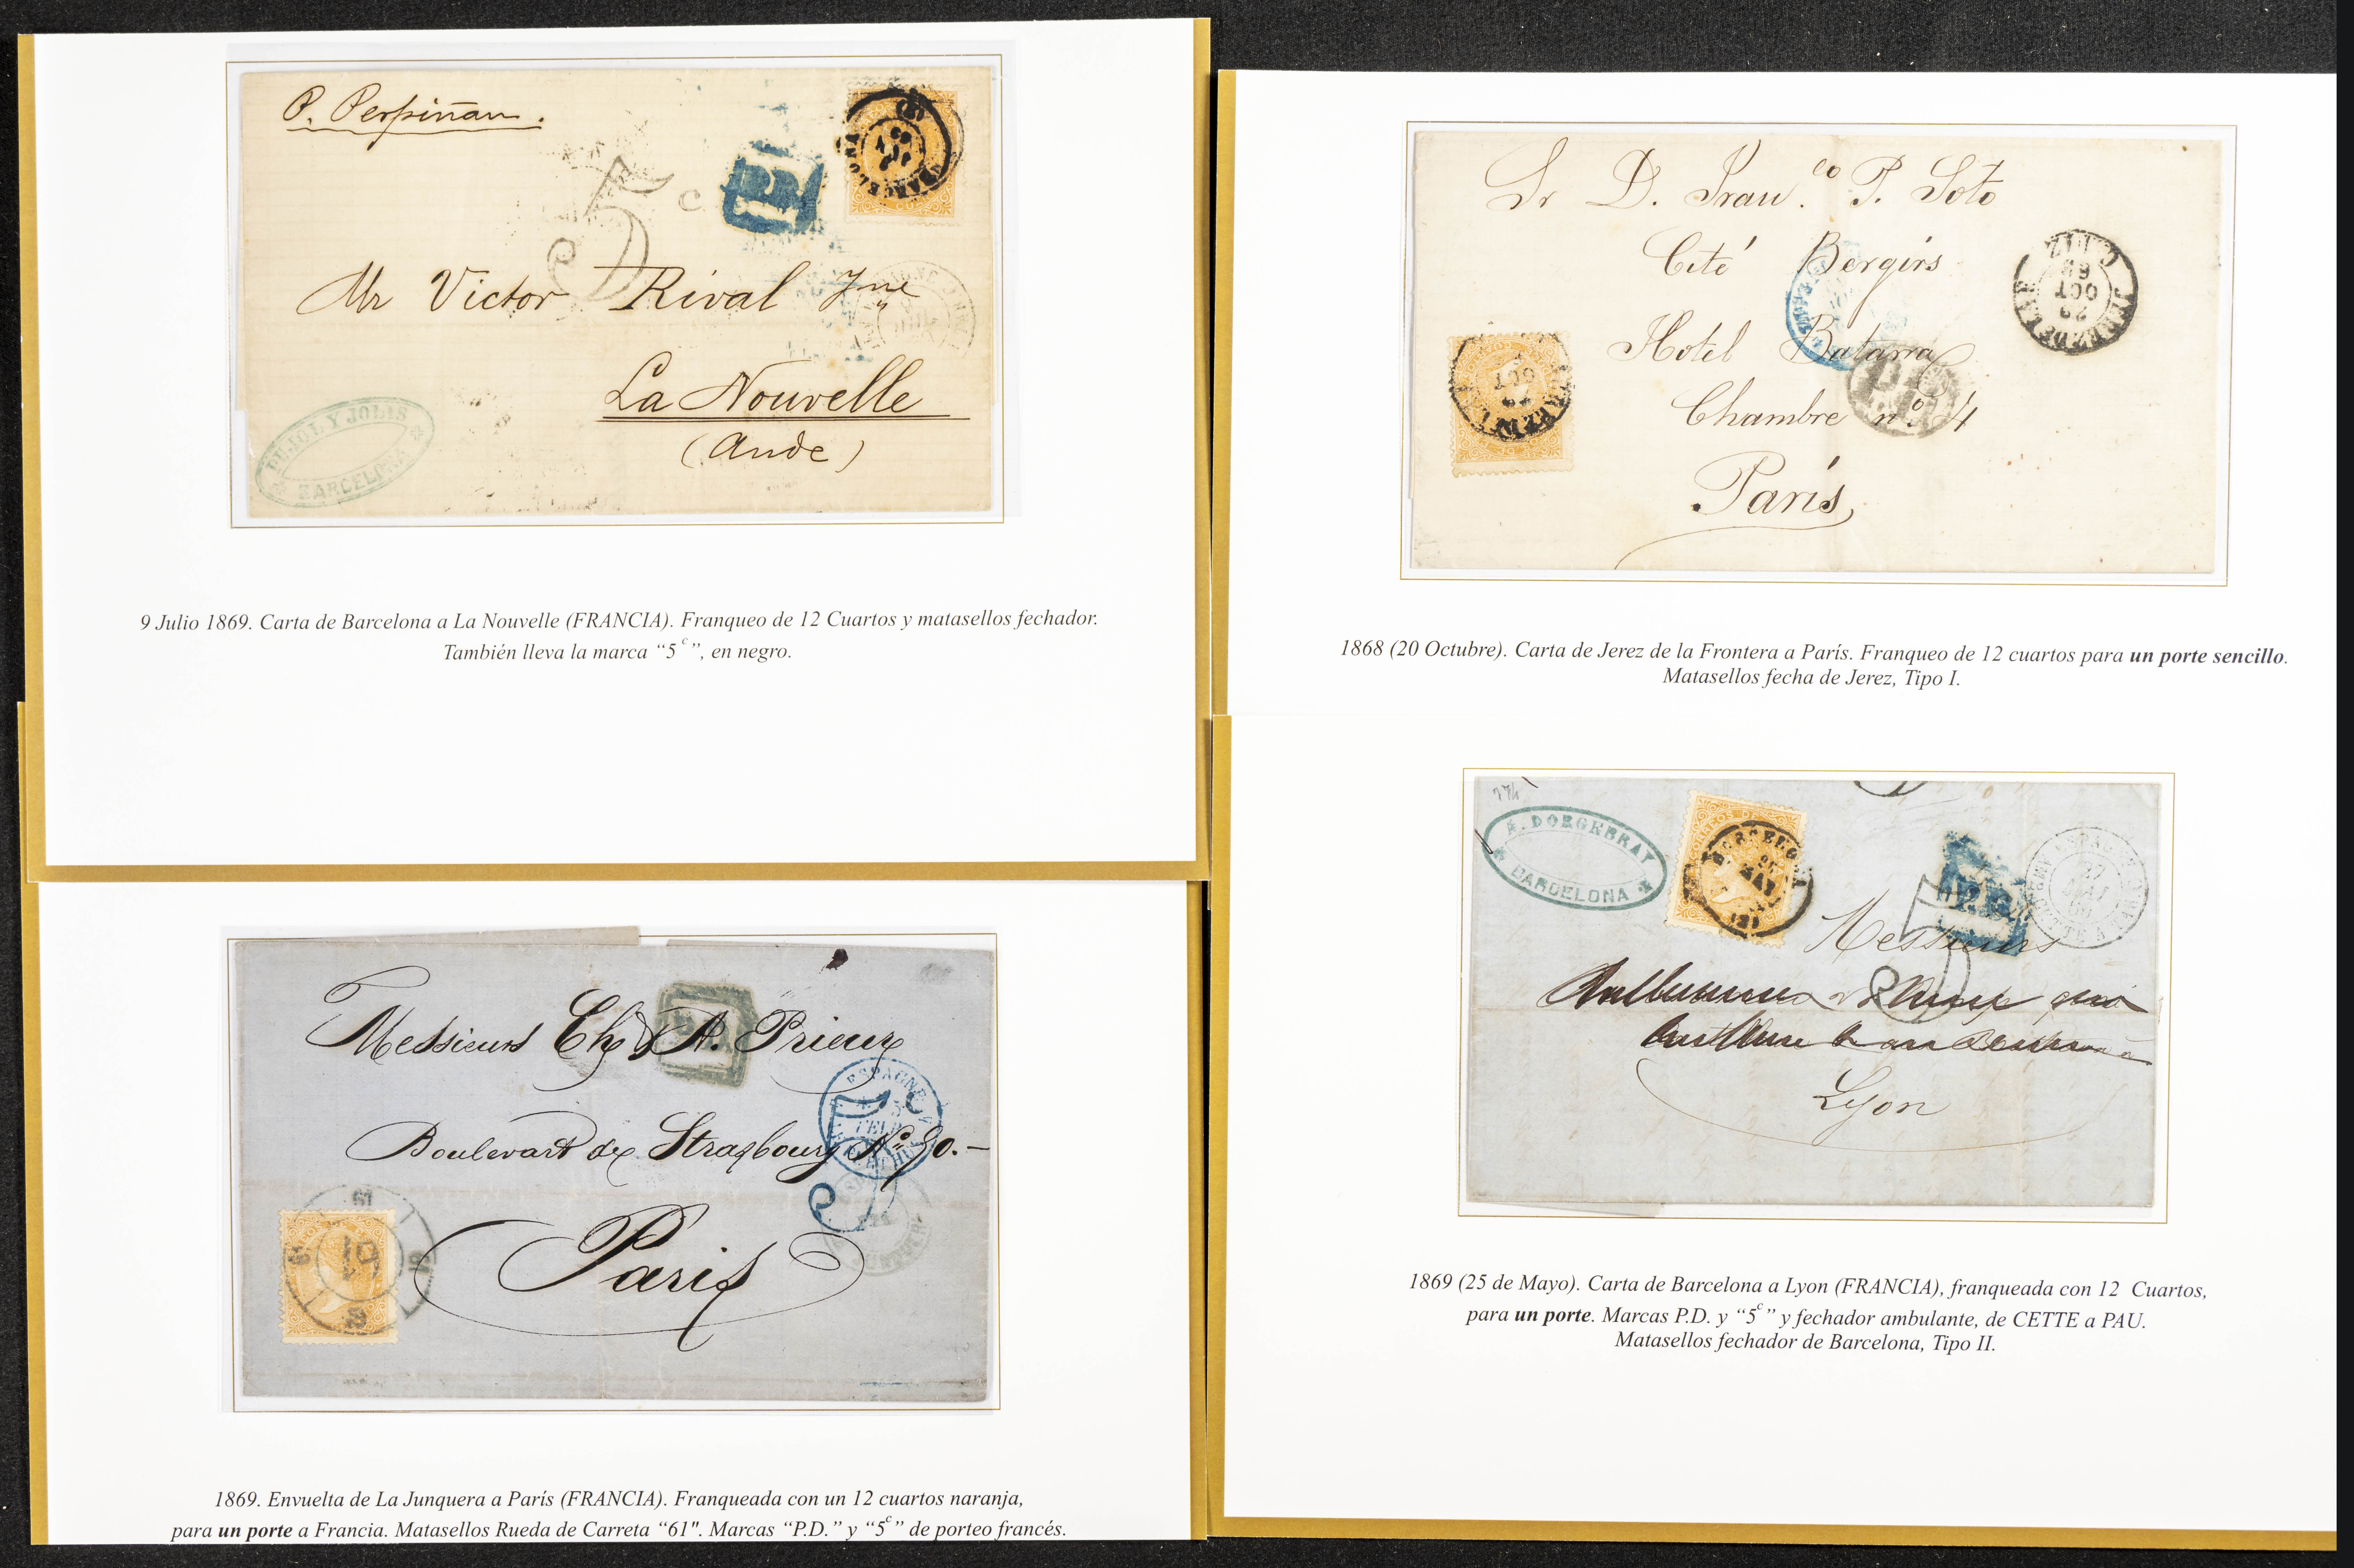 P. Perpiñan.
5 c
P.D.
BARCELONA
Mr Victor Rival Jne
La Nouvelle
(Aude)
PUJOL Y JOLIS
BARCELONA
9 Julio 1869. Carta de Barcelona a La Nouvelle (FRANCIA). Franqueo de 12 Cuartos y matasellos fechador.
También lleva la marca “5c”, en negro.
Sr D. Fran.co P. Soto
Cité Bergirs
Hotel
Chambre nº 4
París
JEREZ DE LA F
CADIZ
20
OCT
68
1868 (20 Octubre). Carta de Jerez de la Frontera a París. Franqueo de 12 cuartos para un porte sencillo.
Matasellos fecha de Jerez, Tipo I.
Messieurs Ch & A. Prieur
Boulevart de Strasbourg Nº 90.-
Paris
ESPAGNE
61
61
61
61
1869. Envuelta de La Junquera a París (FRANCIA). Franqueada con un 12 cuartos naranja,
para un porte a Francia. Matasellos Rueda de Carreta “61". Marcas “P.D.” y “5c” de porteo francés.
DORGEBRAY
BARCELONA
CORREOS DE
BARCELONA
MAY
P.D.
27
MAI
69
Messieurs
Lyon
1869 (25 de Mayo). Carta de Barcelona a Lyon (FRANCIA), franqueada con 12 Cuartos,
para un porte. Marcas P.D. y “5c” y fechador ambulante, de CETTE a PAU.
Matasellos fechador de Barcelona, Tipo II.